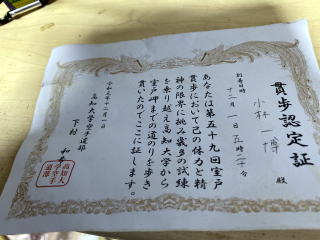 貫歩認定証
小林 一博 殿
到着日時
十二月一日五時二十分
あなたは第五十九回室戸
貫歩において己の体力と精
神の限界に挑み幾多の試練
を乗り越え高知大学から
室戸岬までの道のりを歩き
貫いたのでここに証します。
令和三年十二月一日
高知大学空手道部
下村 和
高知大
学空手
道部